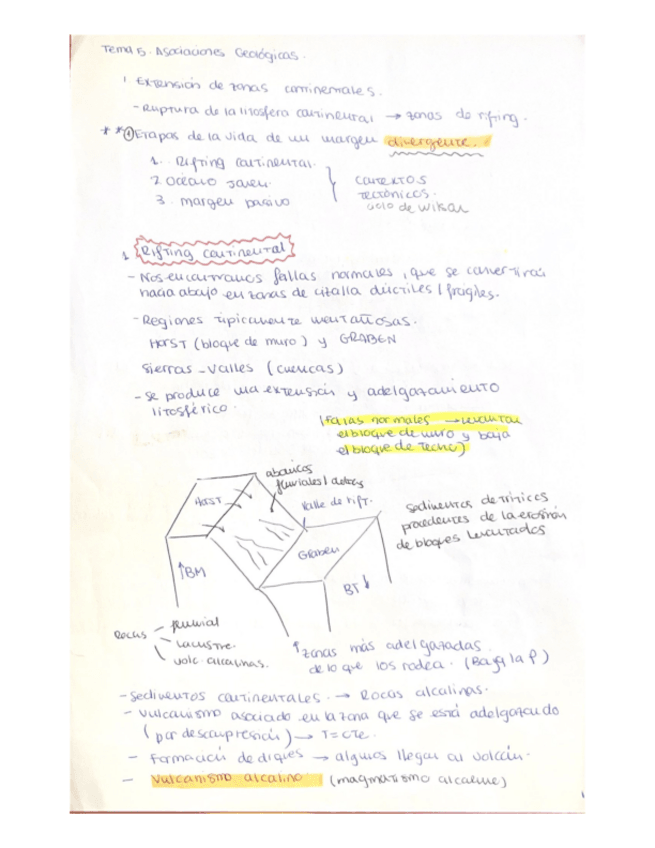 Tema 5. Asociaciones Geológicas.
1 Extensión de zonas continentales.
- Ruptura de la litosfera continental → zonas de rifting.
* * ① Etapas de la vida de un margen divergente.
1. Rifting continental.
2. Océano joven.
3. margen pasivo
contextos
tectónicos.
ciclo de Wilson
1 Rifting continental
- Nos encontramos fallas normales, que se convertirán
hacia abajo en zonas de cizalla dúctiles / frágiles.
- Regiones típicamente montañosas.
HORST (bloque de muro) y GRABEN
Sierras - Valles (cuencas)
- Se produce una extensión y adelgazamiento
litosférico.
(Fallas normales → levantan
el bloque de muro y baja
el bloque de techo)
abanicos
fluviales / deltas
HORST
Valle de rift.
Graben
↑BM
BT↓
sedimentos detríticos
procedentes de la erosión
de bloques levantados
Rocas - fluvial
- lacustre.
\ volc. alcalinas.
↑ zonas más adelgazadas
de lo que los rodea. (Baja la P)
- Sedimentos continentales. → Rocas alcalinas.
- Vulcanismo asociado en la zona que se está adelgazando
(por descompresión) → T = cte.
- Formación de diques → algunos llegan al volcán.
- Vulcanismo alcalino (magmatismo alcalino)